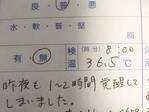 良・普・悪
水・軟・普・堅
有・無 検温 (時分) 8:00
36.5℃
昨夜も1~2時間覚醒して
しまいました。